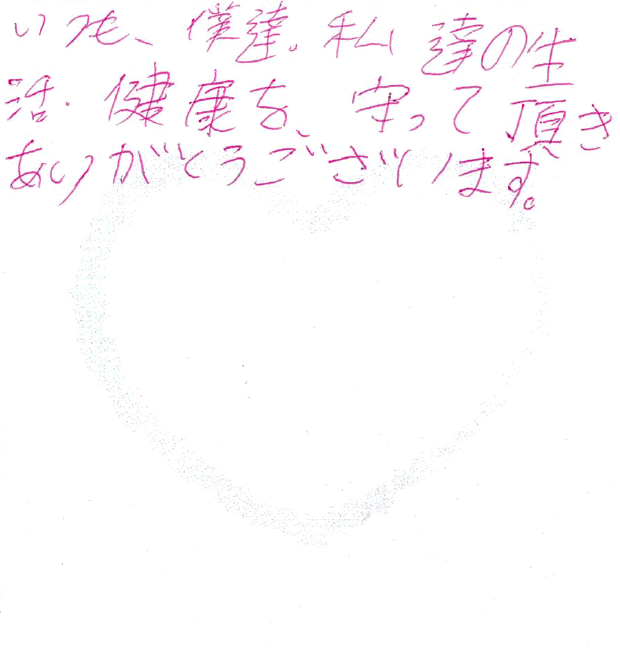 いつも、僕達、私達の生
活・健康を、守って頂き
ありがとうございます。